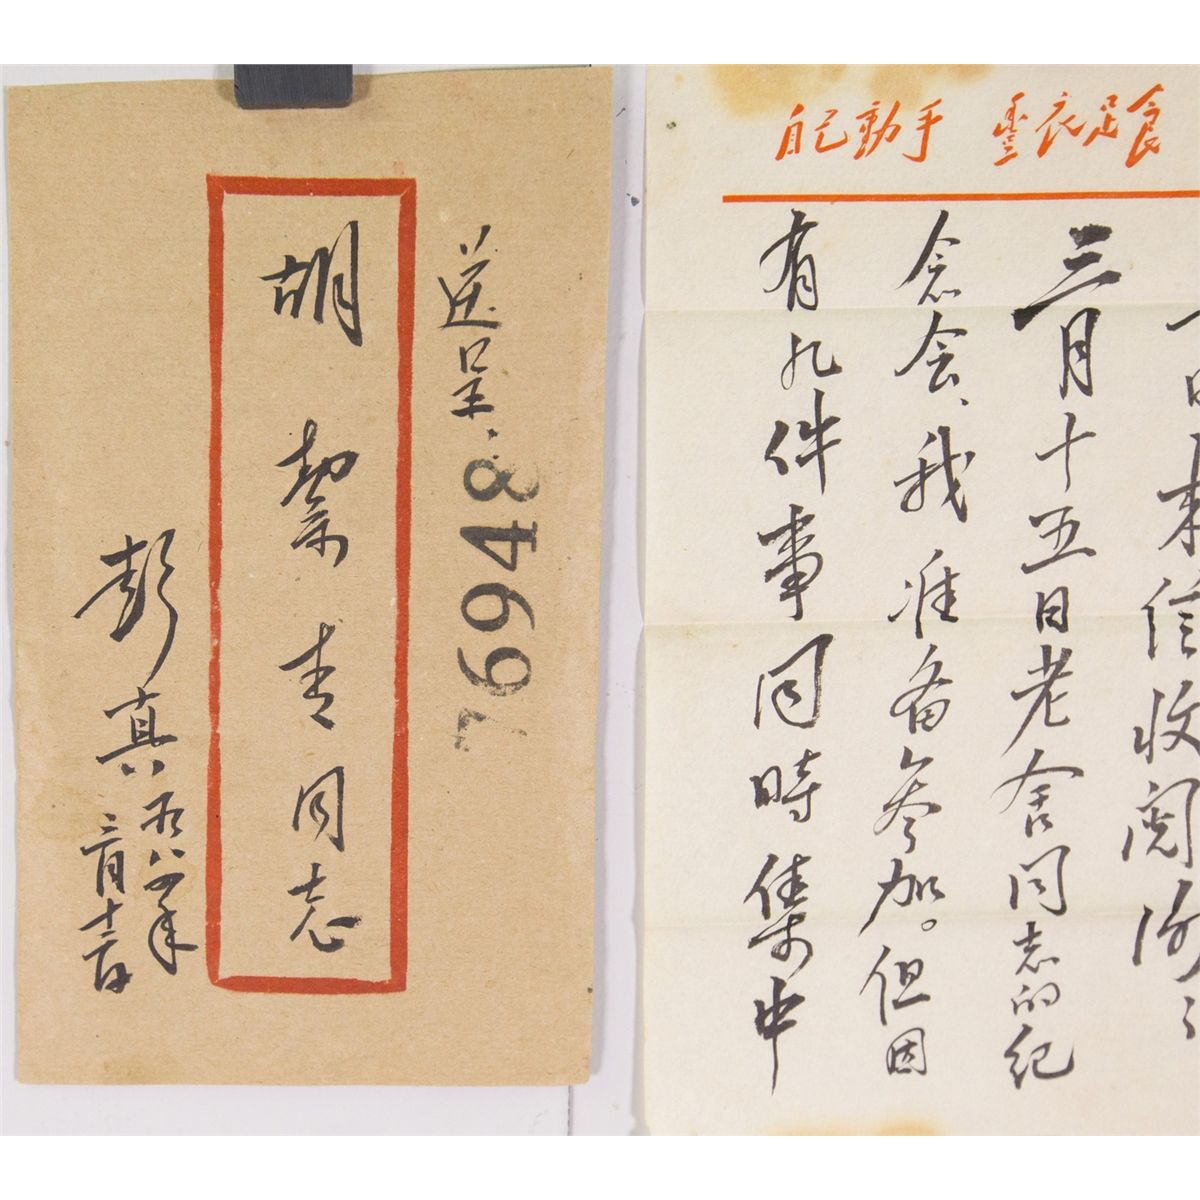 送呈.
76948
胡絜青同志
彭真
一九八四年
三月十二日
自己動手 豐衣足食
来信收阅
三月十五日老舍同志的纪
念会、我准备参加。但因
有几件事同時集中